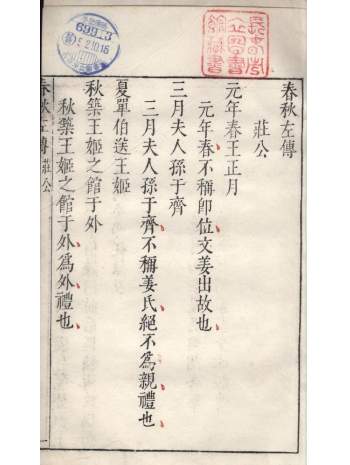 春秋左傳
莊公
元年春王正月
元年春不稱即位文姜出故也
三月夫人孫于齊
三月夫人孫于齊不稱姜氏絕不為親禮也
夏單伯送王姬
秋築王姬之館于外
秋築王姬之館于外為外禮也
春秋左傳 莊公 一
69983
5.2.10.15